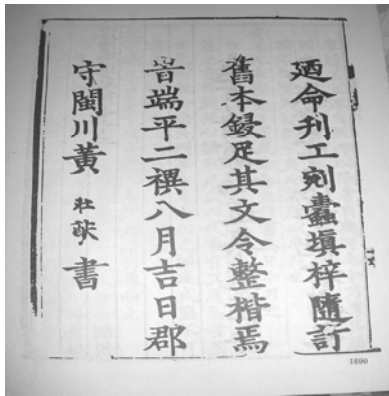 廼命刊工剜蠹塡梓隨訂
舊本鋟足其文令整楷焉
旹端平二禩八月吉日郡
守閩川黃壯猷書
1690